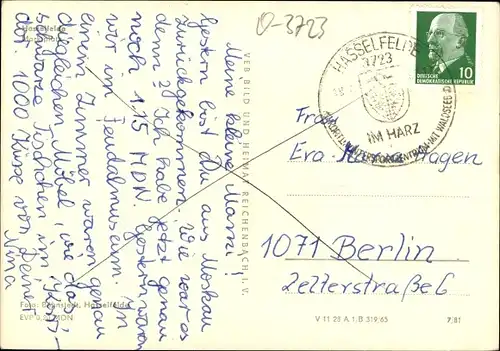 O-3723
Hasselfelde
Meine kleine Mami!
Gestern bist Du aus Moskau
zurückgekommen. Wie war es
denn? Ich habe jetzt genau
noch 1.15 MDN. Gestern waren
wir im Feudalmuseum. In
einem Zimmer waren genau
dieselben Möbel, wie das
schwarze Tischchen im
1000 Küsse von Deiner
Nina
Foto: Hasselfelde
VEB BILD UND HEIMAT REICHENBACH I. V.
HASSELFELDE
3723
IM HARZ
10
DEUTSCHE
DEMOKRATISCHE REPUBLIK
Frau
Eva
1071 Berlin
Zelterstraße 6
V 11 28 A 1. B 319/65
7/81